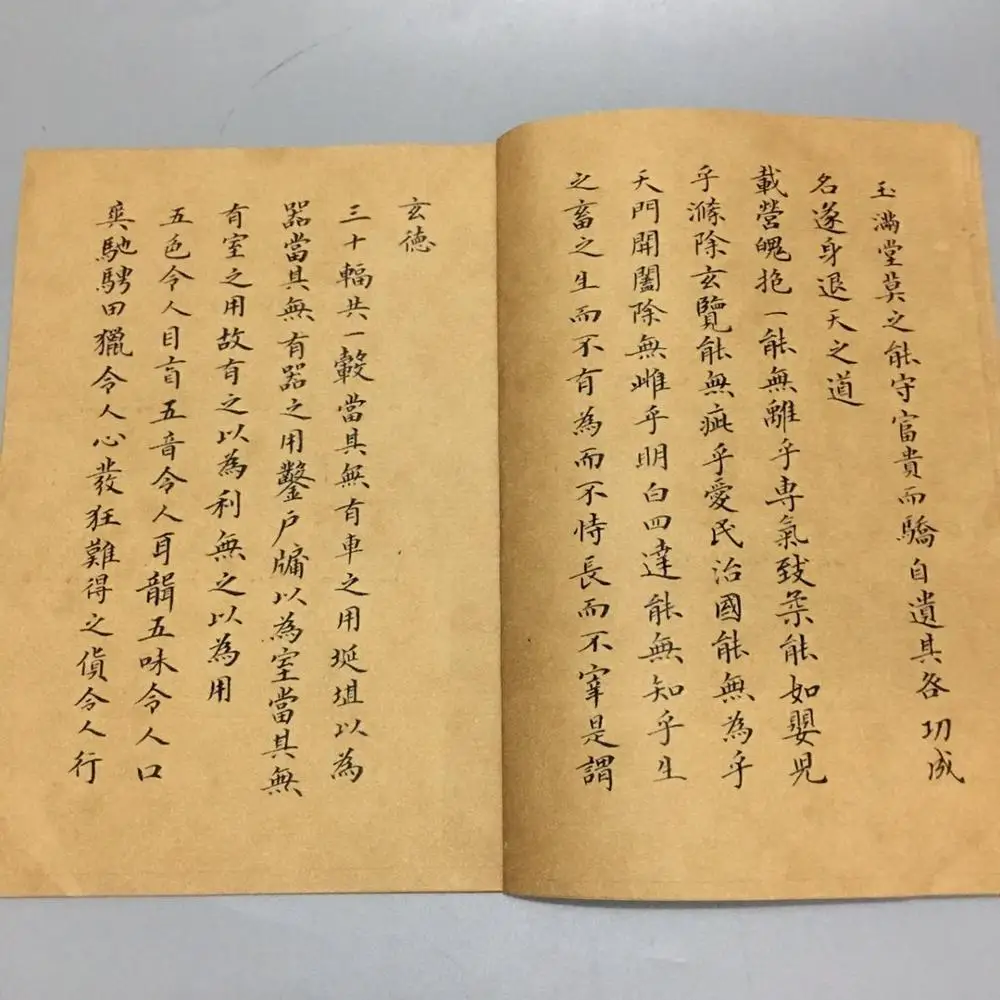 玉滿堂莫之能守富貴而驕自遺其咎功成
名遂身退天之道
載營魄抱一能無離乎專氣致柔能如嬰児
乎滌除玄覽能無疵乎愛民治國能無為乎
天門開闔除無雌乎明白四達能無知乎生
之畜之生而不有為而不恃長而不宰是謂
玄德
三十輻共一轂當其無有車之用埏埴以為
器當其無有器之用鑿戶牖以為室當其無
有室之用故有之以為利無之以為用
五色令人目盲五音令人耳聾五味令人口
爽馳騁田獵令人心發狂難得之貨令人行